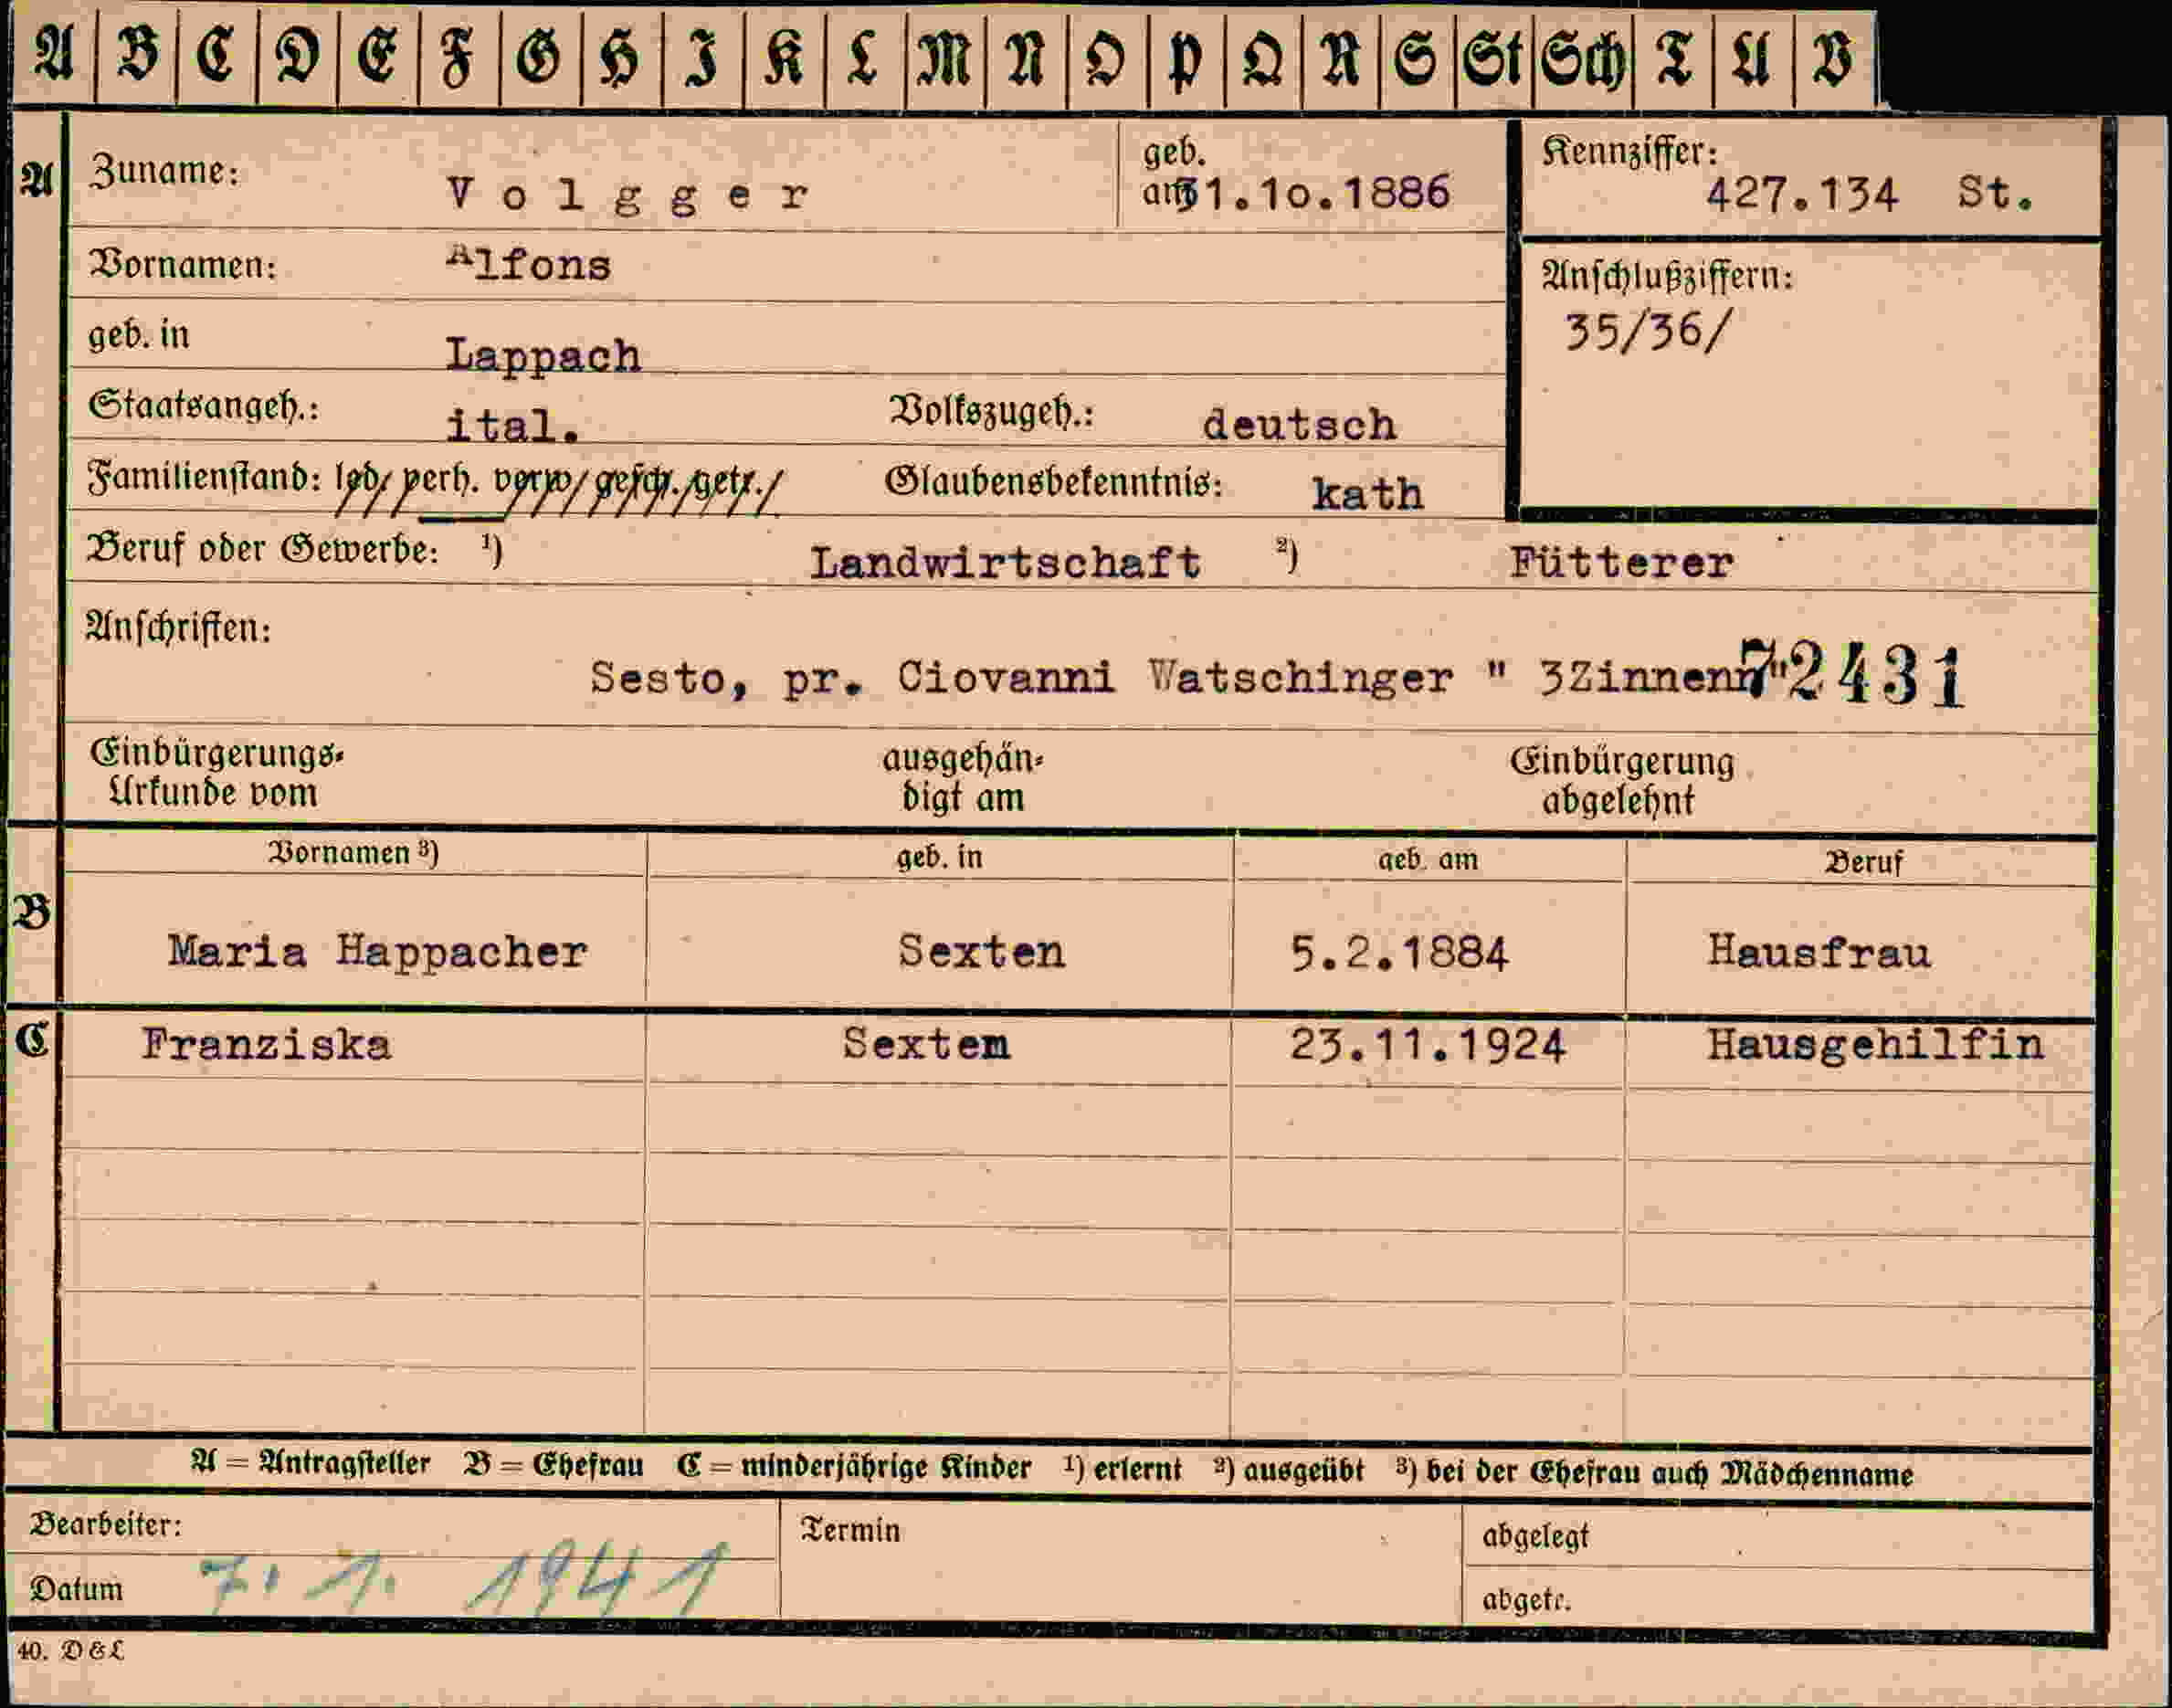 A B C D E F G H I K L M N O P Q R S St Sch T U V
A Zuname: Volgger geb. am 31.10.1886 Kennziffer: 427.134 St.
Vornamen: Alfons Anschlußziffern:
geb. in Lappach 35/36/
Staatsangeh.: ital. Volkszugeh.: deutsch
Familienstand: led/ verh. verw/ gesch./getr./ Glaubensbekenntnis: kath
Beruf oder Gewerbe: ¹) Landwirtschaft ²) Fütterer
Anschriften:
Sesto, pr. Ciovanni Watschinger " 3Zinnen" 72431
Einbürgerungs- ausgehän- Einbürgerung
Urkunde vom digt am abgelehnt
Vornamen ³) geb. in geb. am Beruf
B Maria Happacher Sexten 5.2.1884 Hausfrau
C Franziska Sexten 23.11.1924 Hausgehilfin
A = Antragsteller B = Ehefrau C = minderjährige Kinder ¹) erlernt ²) ausgeübt ³) bei der Ehefrau auch Mädchenname
Bearbeiter: Termin abgelegt
Datum 7. 1. 1941 abgetr.
40. D&L